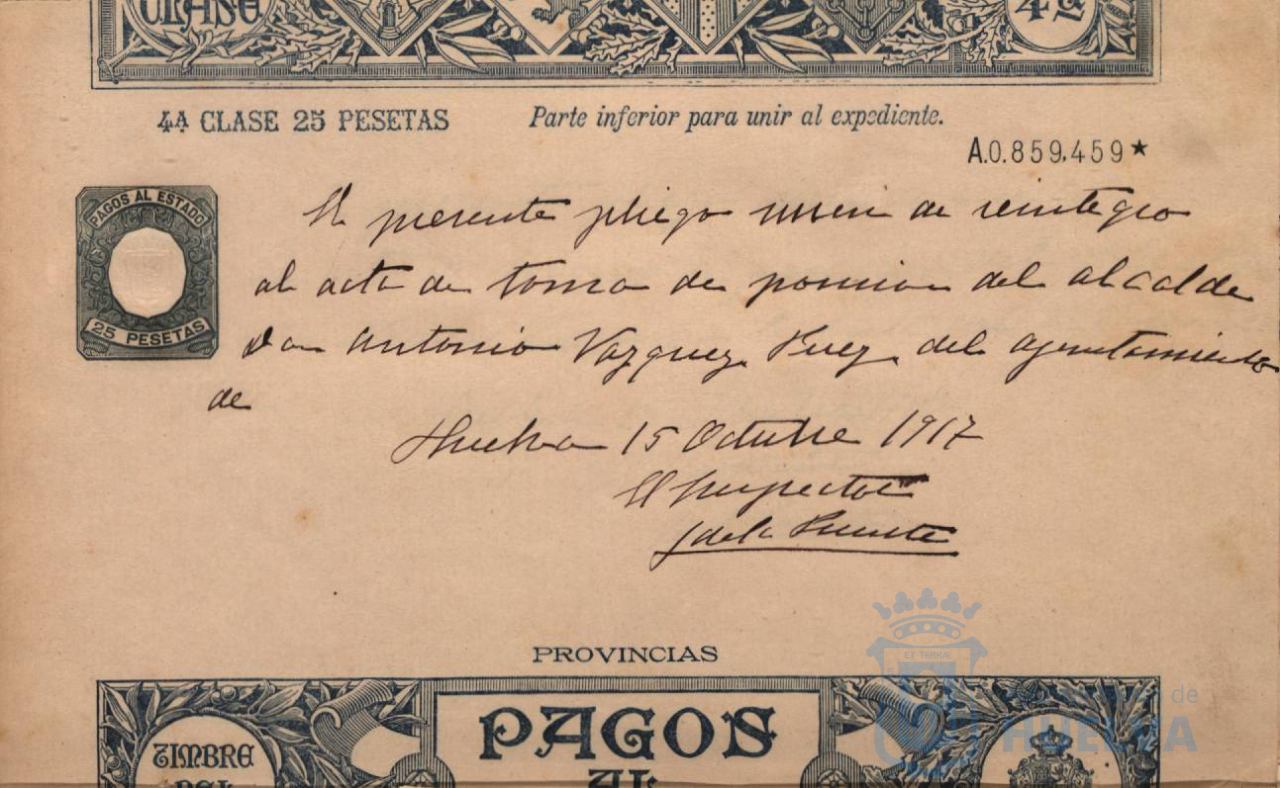 CLASE
4ª
4ª CLASE 25 PESETAS
Parte inferior para unir al expediente.
A.0.859,459★
PAGOS AL ESTADO
25 PESETAS
El presente pliego sirve de reintegro
al acta de toma de posesion del alcalde
Don Antonio Vazquez Perez del ayuntamiento
de
Huelva 15 Octubre 1917
El Inspector
J de la Puente
PROVINCIAS
TIMBRE
DEL
PAGOS
AL
de
HUELVA